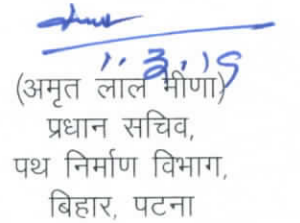 1.3.19
(अमृत लाल मीणा)
प्रधान सचिव,
पथ निर्माण विभाग,
बिहार, पटना